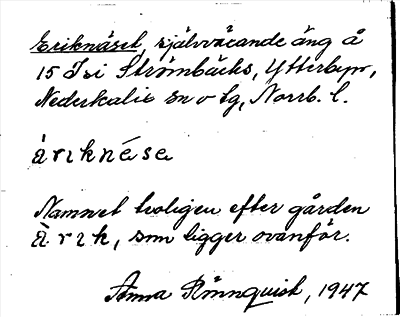 Eriknäset, självväxande äng å
15 Isi Strömbäcks, Ytterbyn,
Nederkalix sn o tg, Norrb. l.
àrɩknésa
Namnet troligen efter gården
Àrɩk, som ligger ovanför.
Anna Rönnquist, 1947